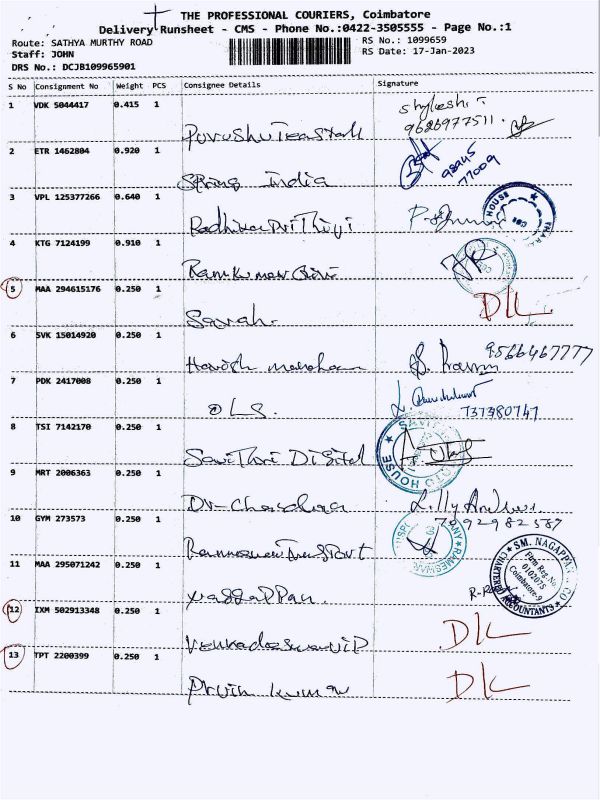 THE PROFESSIONAL COURIERS, Coimbatore
Delivery Runsheet - CMS - Phone No.:0422-3505555 - Page No.:1
Route: SATHYA MURTHY ROAD
RS No.: 1099659
Staff: JOHN
RS Date: 17-Jan-2023
DRS No.: DCJB109965901
S No Consignment No Weight PCS Consignee Details Signature
1 VDK 5044417 0.415 1
9626977511.
2 ETR 1462804 0.920 1
Spring India
98945
77009
3 VPL 125377266 0.640 1
HOUSE
4 KTG 7124199 0.910 1
Ramkumar
5 MAA 294615176 0.250 1
Sarah.
DL
6 SVK 15014920 0.250 1
Harish manohar
9566467777
7 PDK 2417008 0.250 1
OLS.
737380747
8 TSI 7142170 0.250 1
Savithri Digital
SAVITHRI PHOTO HOUSE
9 MRT 2006363 0.250 1
Dr-Chandra
10 GYM 273573 0.250 1
11 MAA 295071242 0.250 1
Naggappan.
SM. NAGAPPAN & CO
Firm Reg. No.
010207S
Coimbatore-9
CHARTERED ACCOUNTANTS
12 IXM 502913348 0.250 1
DL
13 TPT 2200399 0.250 1
Pravin kumar
DL